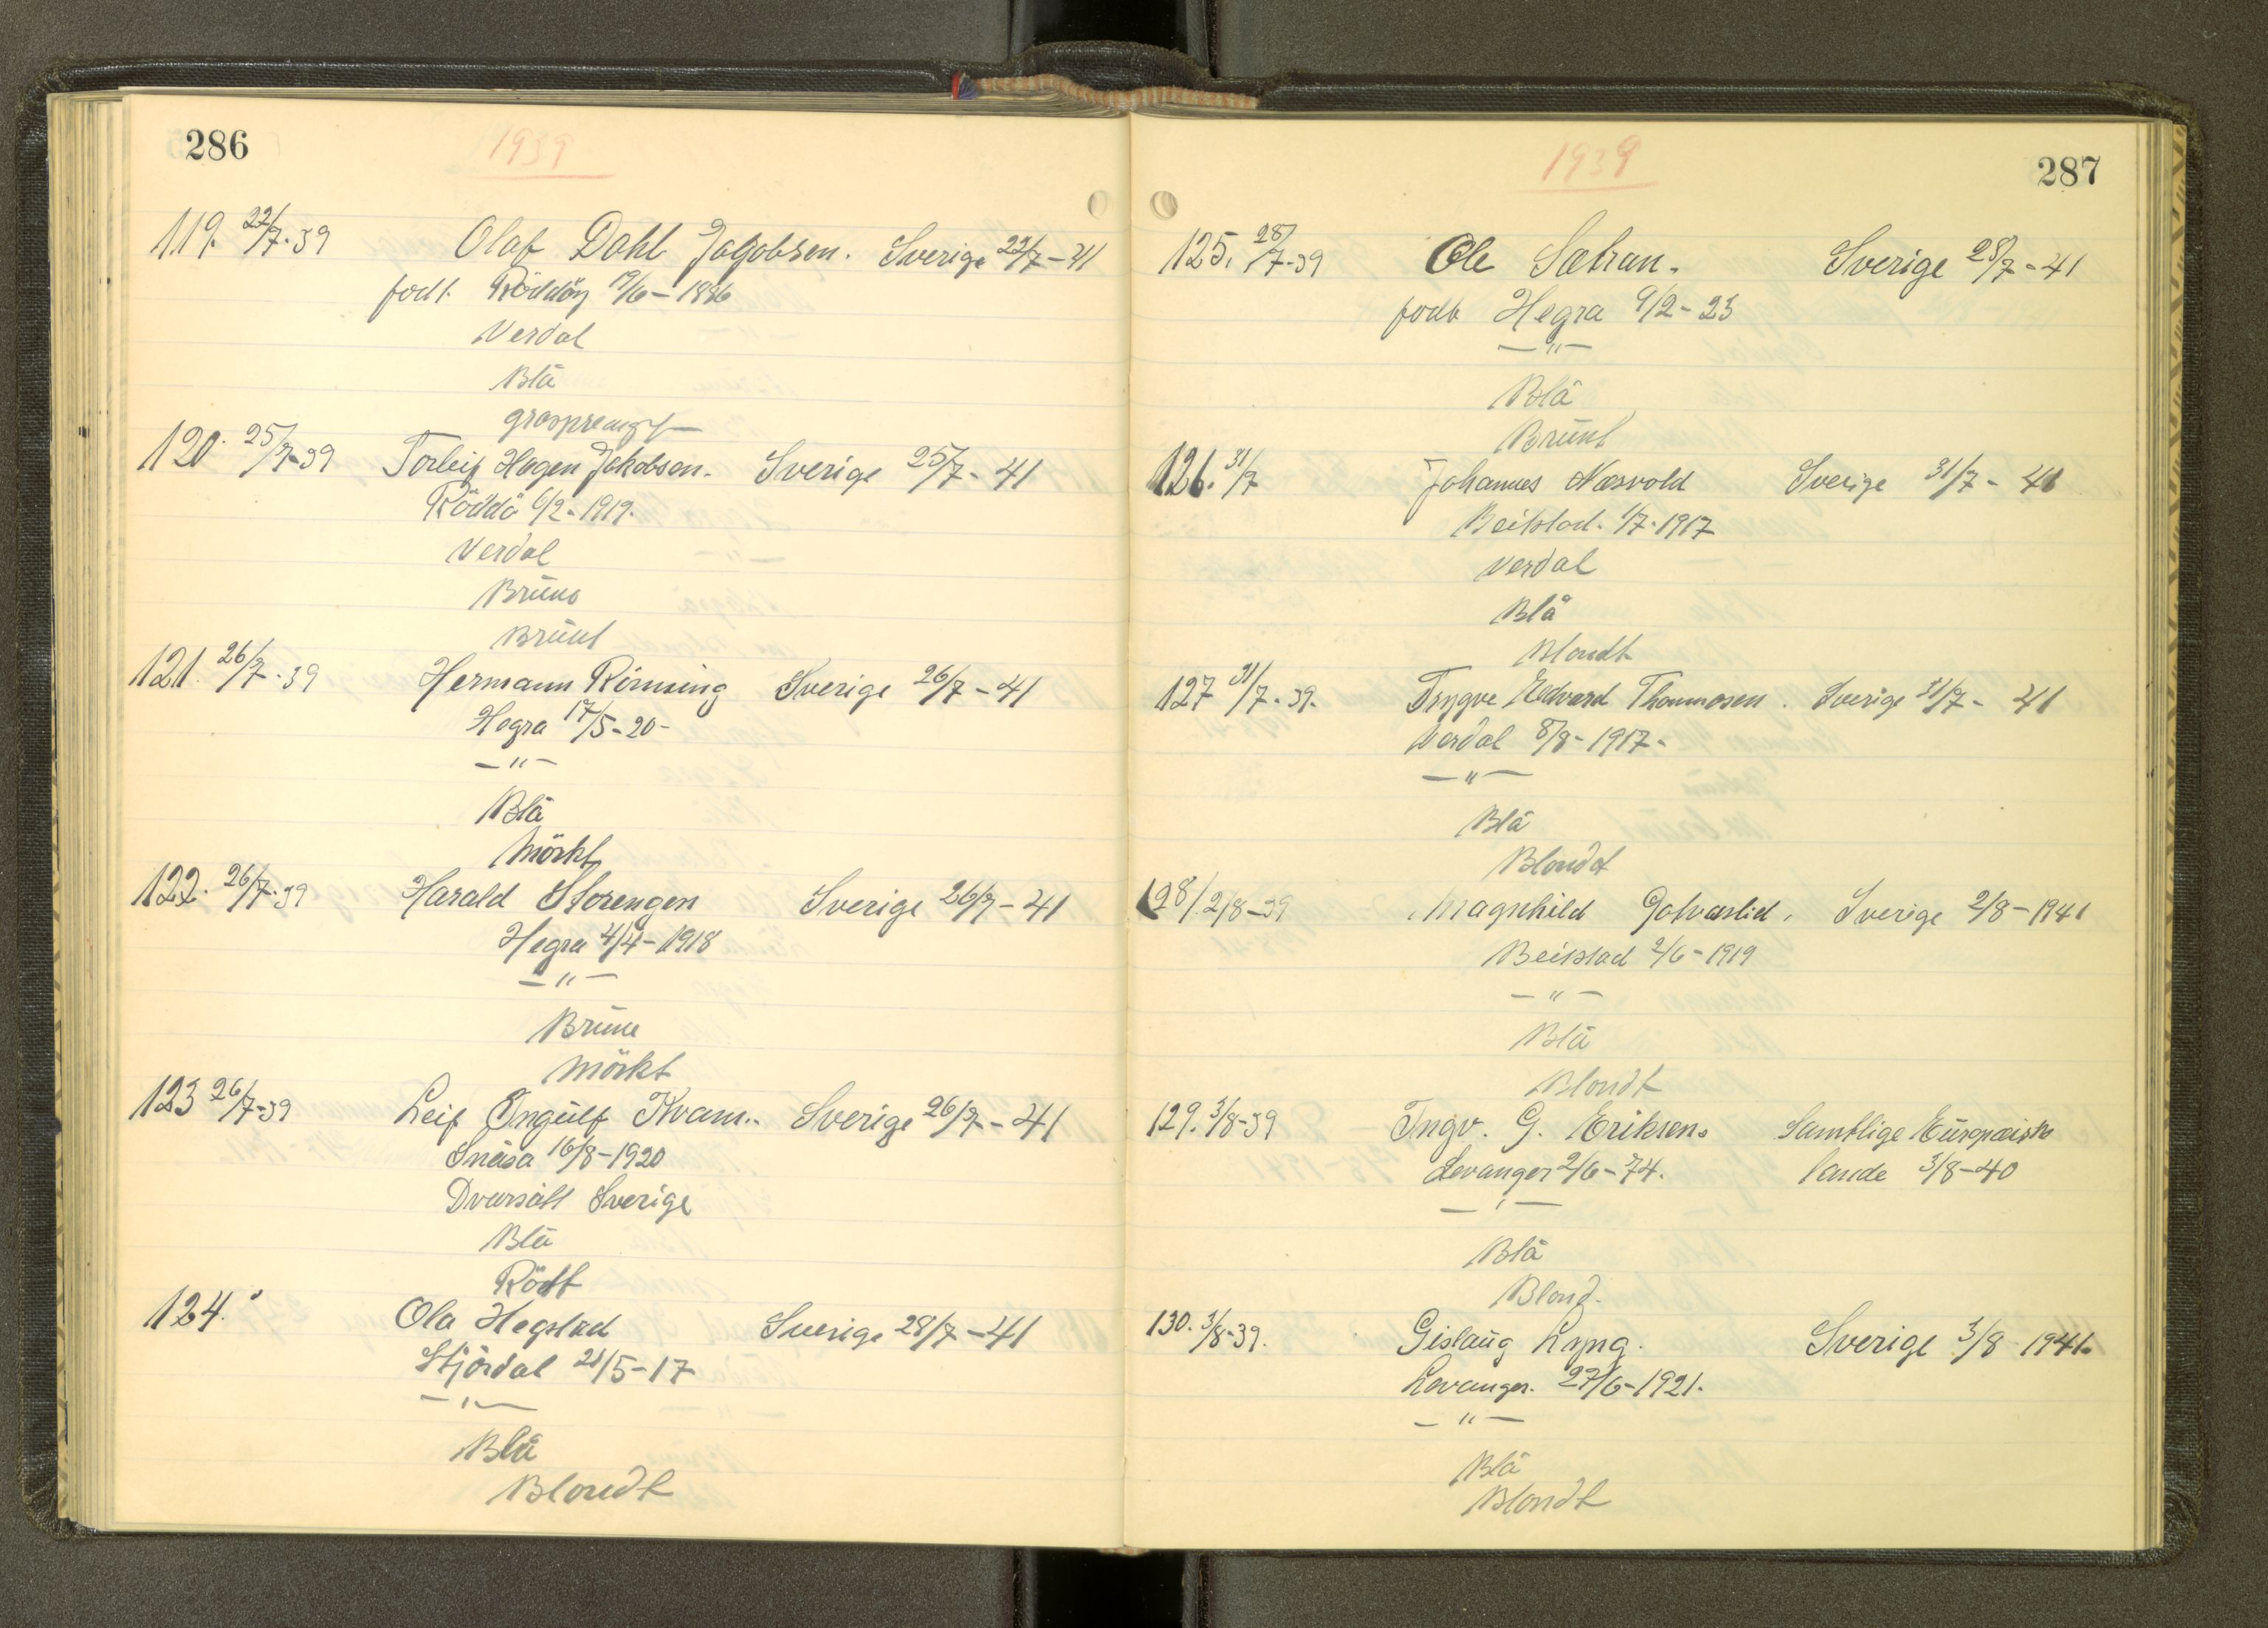 286
1939
119. 22/7-39 Olaf Dahl Jakobsen. Sverige 22/7-41
født Röddöy 19/6-1886
Verdal
Blå
gråsprengt
120. 25/7-39 Torleif Hagen Jakobsen. Sverige 25/7-41
Röddö 6/2-1919.
Verdal
Brune
Brünt
121. 26/7-39 Hermann Rönning Sverige 26/7-41
Hegra 17/5-20-
-"-
Blå
Mörkt
122. 26/7-39 Harald Storengen Sverige 26/7-41
Hegra 4/4-1918
-"-
Brune
Mörkt
123 26/7-39 Leif Ingulf Kvam.. Sverige 26/7-41
Snåsa 16/8-1920
Dvärsätt Sverige
Blå
Rödt
124." Ola Hegstad Sverige 28/7-41
Stjördal 21/5-17
-"-
Blå
Blondt
1939
287
125. 28/7-39 Ole Sætran. Sverige 28/7-41
født Hegra 9/2-23
-"-
Blå
Brünt
126. 31/7 Johannes Næsvold Sverige 31/7-41
Beitstad. 1/7-1917
Verdal
Blå
Blondt
127 31/7-39. Trygve Edvard Thommosen. Sverige 31/7-41
Verdal 8/8-1917-
-"-
Blå
Blondt
128/ 2/8-39 Magnhild Gotvaslid. Sverige 2/8-1941
Beitstad 2/6-1919
-"-
Blå
Blondt
129. 3/8-39 Ingv. G. Eriksen. Samtlige Europæiske
Levanger 2/6-74. lande 3/8-40
-"-
Blå
Blond.
130. 3/8-39. Gislaug Lyng. Sverige 3/8-1941.
Levanger. 27/6-1921.
-"-
Blå
Blondt